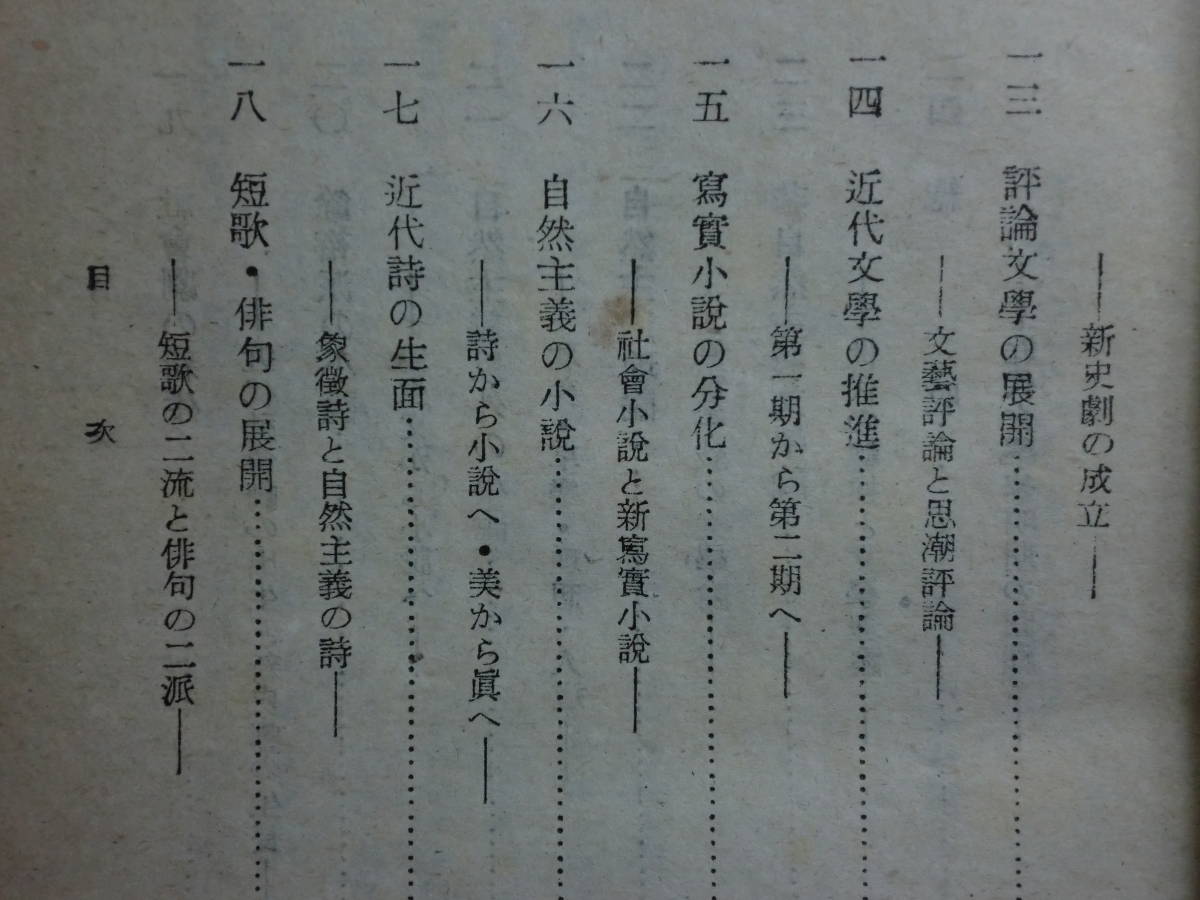 ——新史劇の成立——
一三 評論文學の展開……………………
——文藝評論と思潮評論——
一四 近代文學の推進……………………
——第一期から第二期へ——
一五 寫實小說の分化……………………
——社會小說と新寫實小說——
一六 自然主義の小說……………………
——詩から小說へ・美から眞へ——
一七 近代詩の生面……………………
——象徵詩と自然主義の詩——
一八 短歌・俳句の展開……………………
——短歌の二流と俳句の二派——
目次